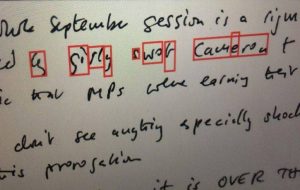 whole September session is a rigm
by girly swot Cameron t
that MPs were earning their
don't see anything especially shock
this prorogation
it is OVER TH